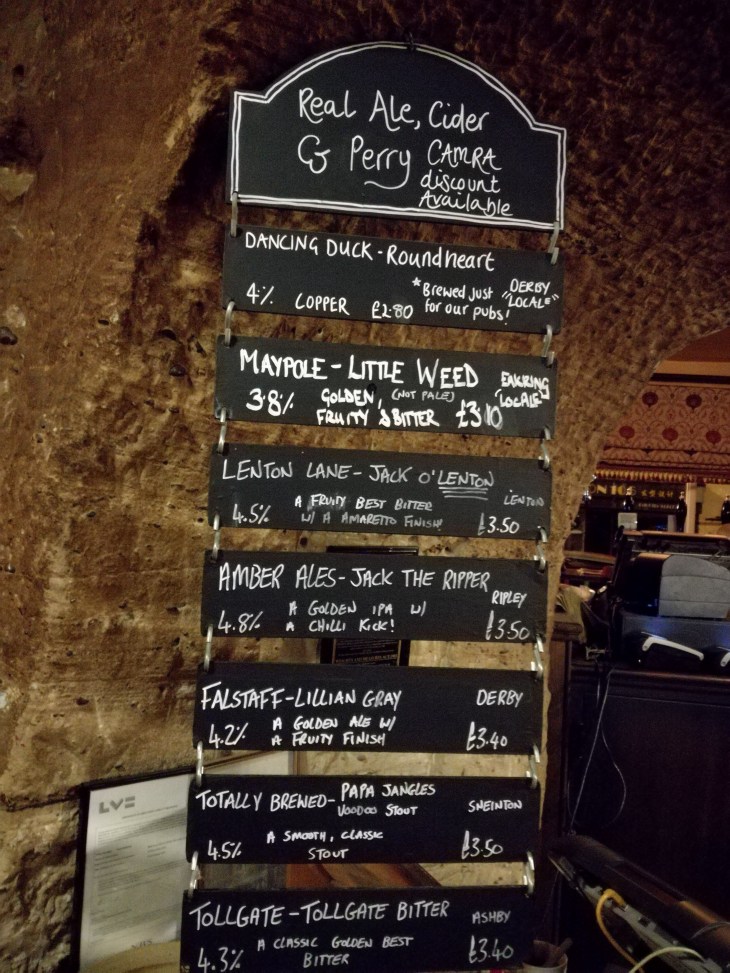 Real Ale, Cider
& Perry CAMRA
discount
Available
DANCING DUCK - Roundheart
4% COPPER £2.80 *Brewed just for our pubs! DERBY "LOCALE"
MAYPOLE - LITTLE WEED EAKRING
3.8% GOLDEN, (NOT PALE) "LOCALE"
FRUITY & BITTER £3.10
LENTON LANE - JACK O'LENTON LENTON
A FRUITY BEST BITTER
4.5% W/ A AMARETTO FINISH! £3.50
AMBER ALES - JACK THE RIPPER
RIPLEY
4.8% A GOLDEN IPA W/
A CHILLI KICK! £3.50
FALSTAFF - LILLIAN GRAY DERBY
4.2% A GOLDEN ALE W/
A FRUITY FINISH £3.40
TOTALLY BREWED - PAPA JANGLES
VOODOO STOUT SNEINTON
A SMOOTH, CLASSIC
4.5% STOUT £3.50
TOLLGATE - TOLLGATE BITTER ASHBY
4.3% A CLASSIC GOLDEN BEST
BITTER £3.40